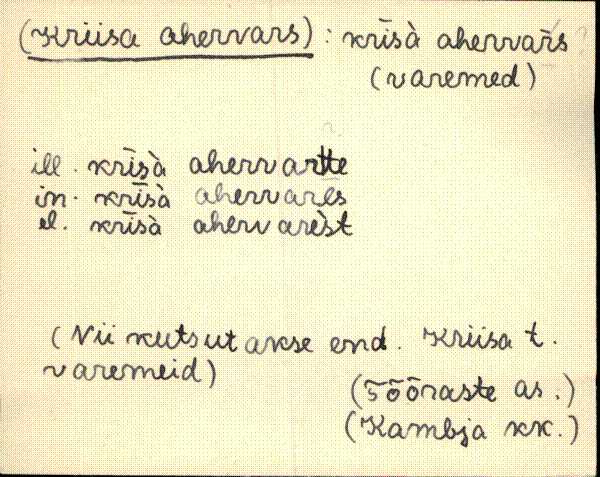 (Kriisa ahervars) : krīsà ahervar̄s
(varemed)
ill. krīsà ahervartte
in. krīsà ahervarēs
el. krīsà ahervarèst
(Nii kutsutakse end. Kriisa t.
varemeid)
(Sõõraste as.)
(Kambja kk.)